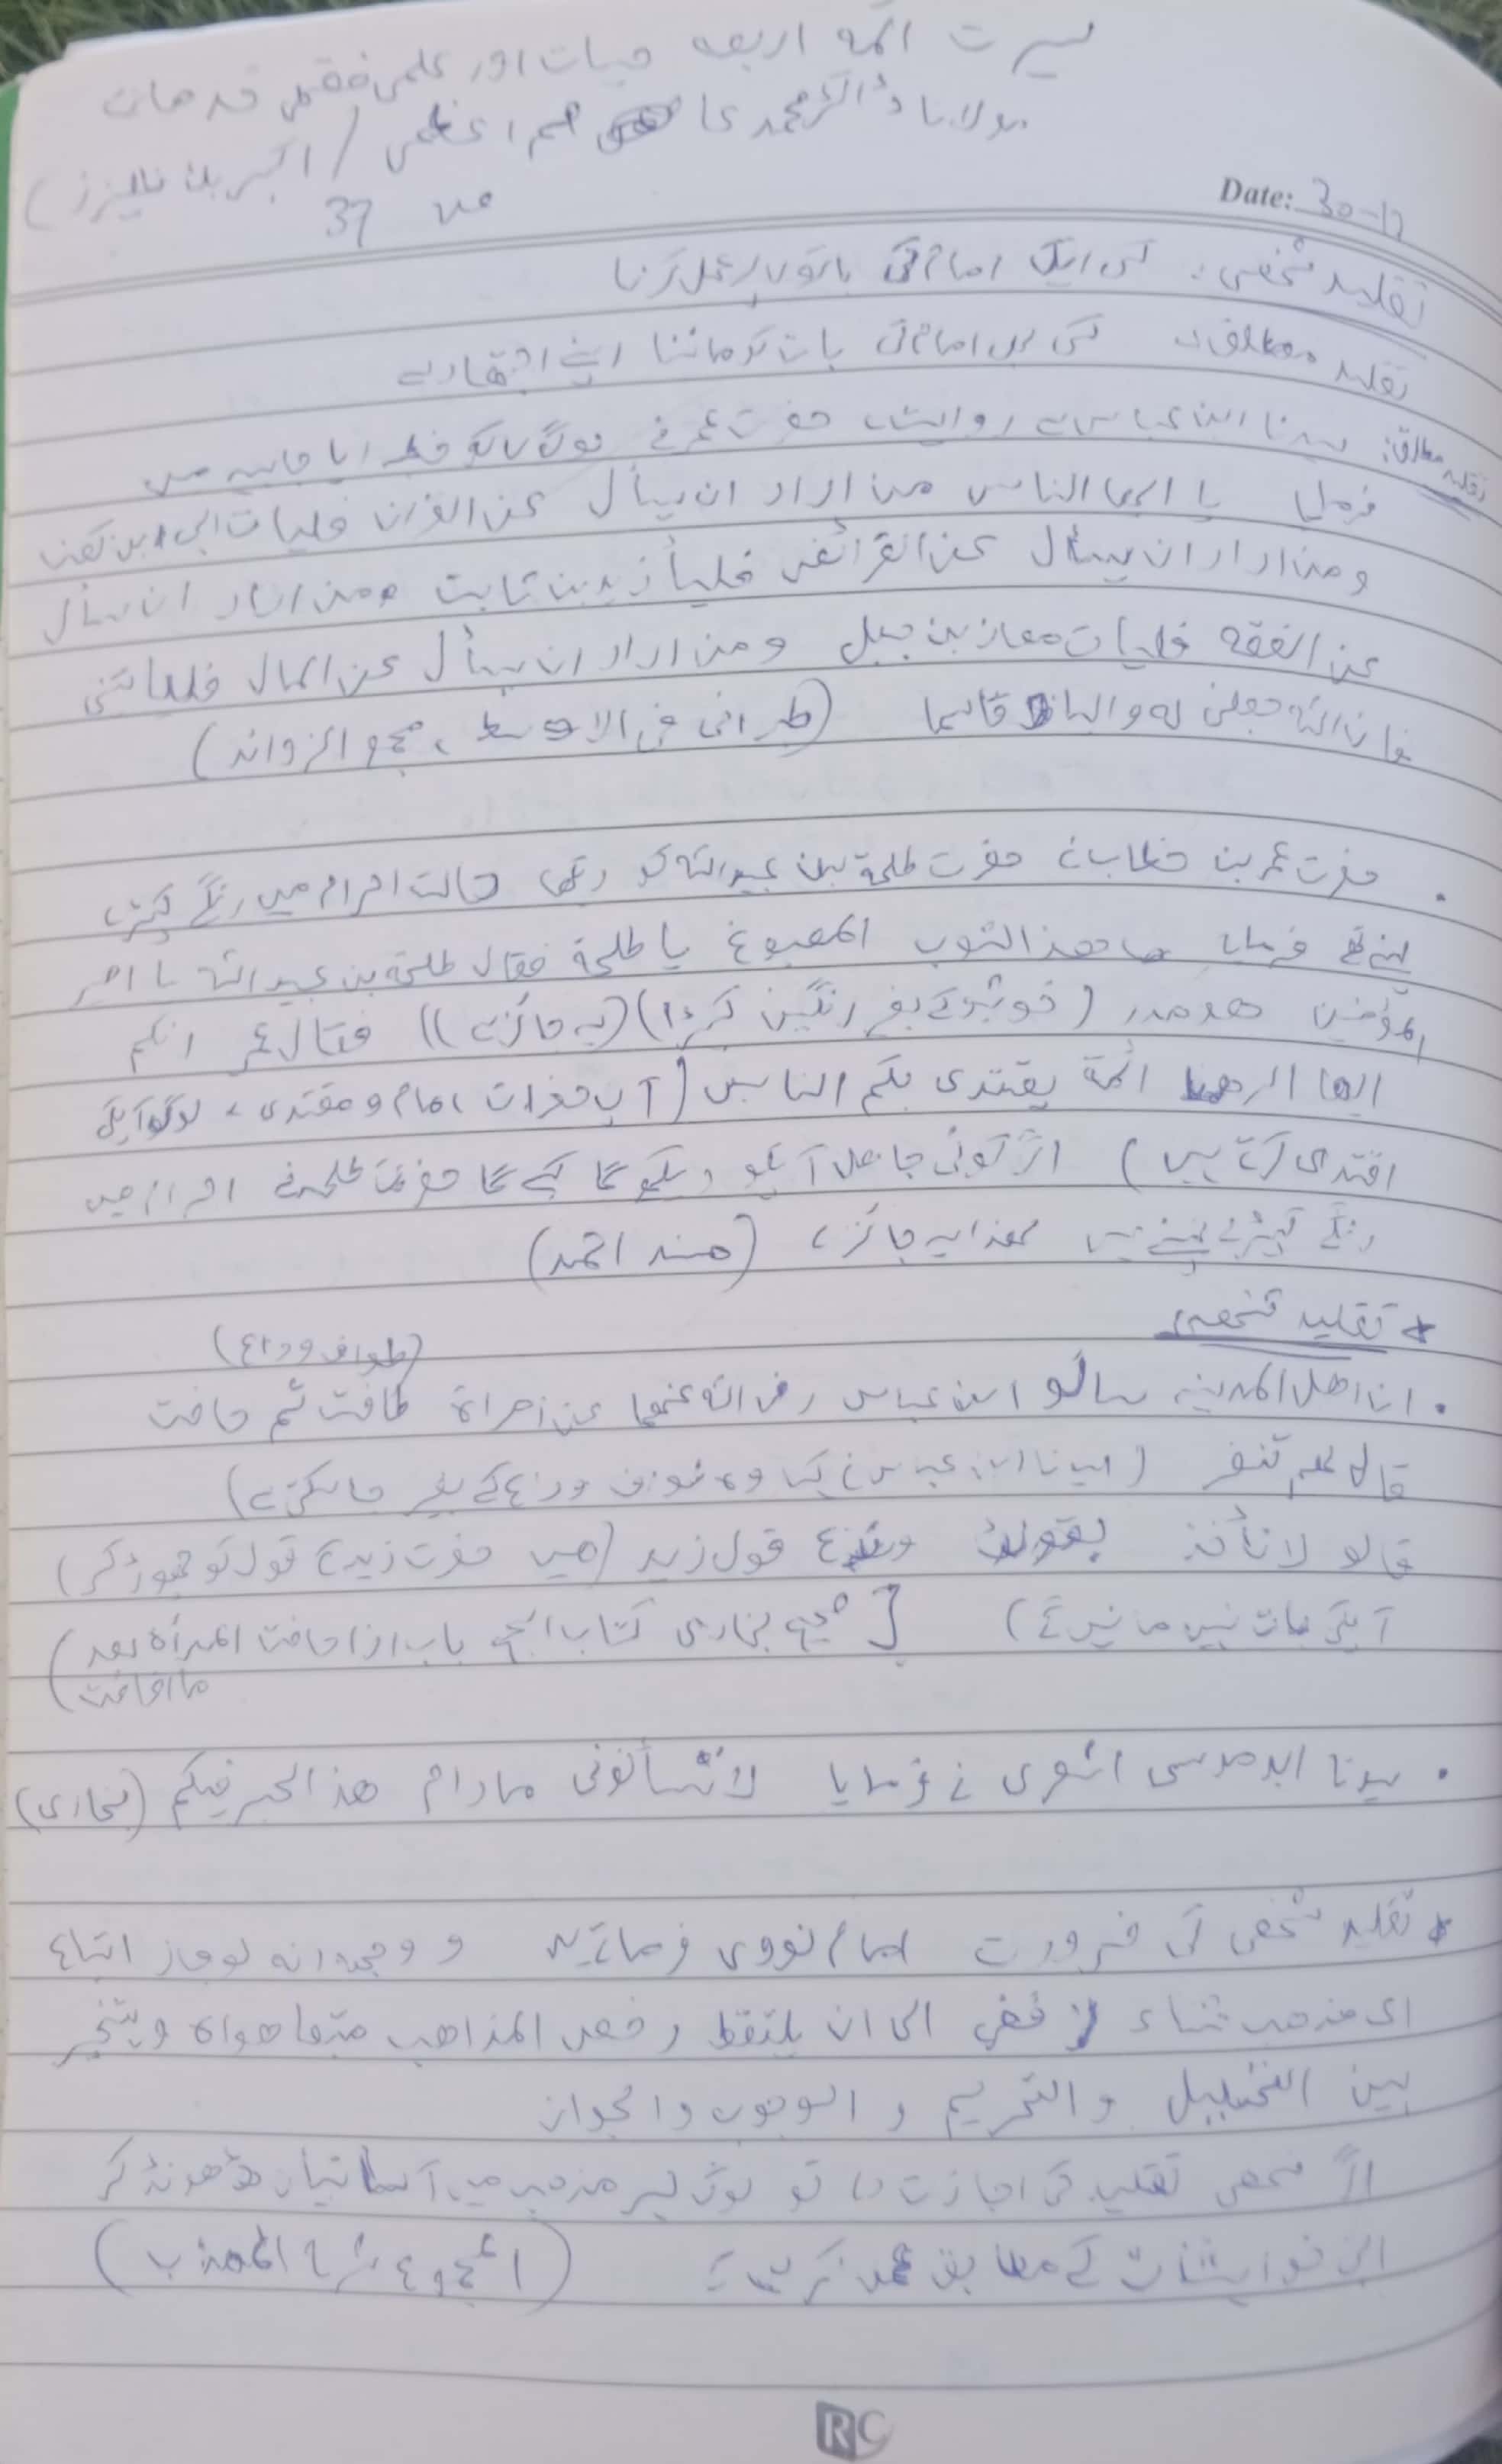 سیرت ائمہ اربعہ حیات اور علمی فقہی خدمات
مولانا ڈاکٹر محمد عاصم اعظمی / (اکبر بک سیلرز)
ص 37
Date: 30-12
تقلید شخصی: کسی ایک امام کی باتوں پر عمل کرنا
تقلید مطلق: کسی بھی امام کی بات کو ماننا اپنے اجتہاد سے
تقلید مطلق: سیدنا ابن عباس سے روایت حضرت عمر نے لوگوں کو خطبہ دیا جابیہ میں
فرمایا یا ایھا الناس من اراد ان یسأل عن القرآن فلیات ابی ابن کعب
ومن اراد ان یسأل عن الفرائض فلیأ زید بن ثابت ومن اراد ان یسأل
عن الفقه فلیات معاذ بن جبل ومن اراد ان یسأل عن المال فلیاتنی
فان اللہ جعلنی له والیا قاسما (طبرانی فی الاوسط، مجمع الزوائد)
. حضرت عمر بن خطاب نے حضرت طلحة بن عبید اللہ کو دیکھا حالت احرام میں رنگے کپڑے
پہنے تھے فرمایا ما ھذ الثوب المصبوغ یا طلحة فقال طلحة بن عبید اللہ یا امیر
المؤمنین ھو مدر (خوشبو کے بغیر رنگین کپڑا) (یہ جائز ہے)) فقال عمر انکم
ایھا الرھط ائمة یقتدی بکم الناس (آپ حضرات امام و مقتدی، لوگ آپکی
اقتدی کرتے ہیں) اگر کوئی جاھل آپکو دیکھے گا کہے گا حضرت طلحہ نے احرام میں
رنگے کپڑے پہنے ہیں لھذا یہ جائز، (مسند احمد)
* تقلید شخصی
(طواف وداع)
. ان اھل المدینه سالو ابن عباس رضی اللہ عنھما عن امراة طافت ثم حاضت
قال لھم تنفر (سیدنا ابن عباس نے کہا وہ طواف وداع کے بغیر جا سکتی ہے)
قالو لا نأخذ بقولك وندع قول زید (ھم حضرت زید کے قول کو چھوڑ کر)
آپکی بات نہیں مانیں گے) [صحیح بخاری کتاب الحج باب اذا حاضت المرأة بعد
ما افاضت)
. سیدنا ابو موسی اشعری نے فرمایا لا تسألونی مادام ھذ الحبر فیکم (بخاری)
* تقلید شخصی کی ضرورت امام نووی فرماتے ہیں و وجهه انه لو جاز اتباع
ای مذھب شاء لا فضی الی ان یلتقط رخص المذاھب متبعا ھواہ ویتخیر
بین التحلیل والتحریم و الوجوب والجواز
اگر شخصی تقلید کی اجازت تو لوگ ہر مذھب میں آسانیاں ڈھونڈ کر
اپنی خواہشات کے مطابق عمل کریں گے (المجموع شرح المھذب)
RC